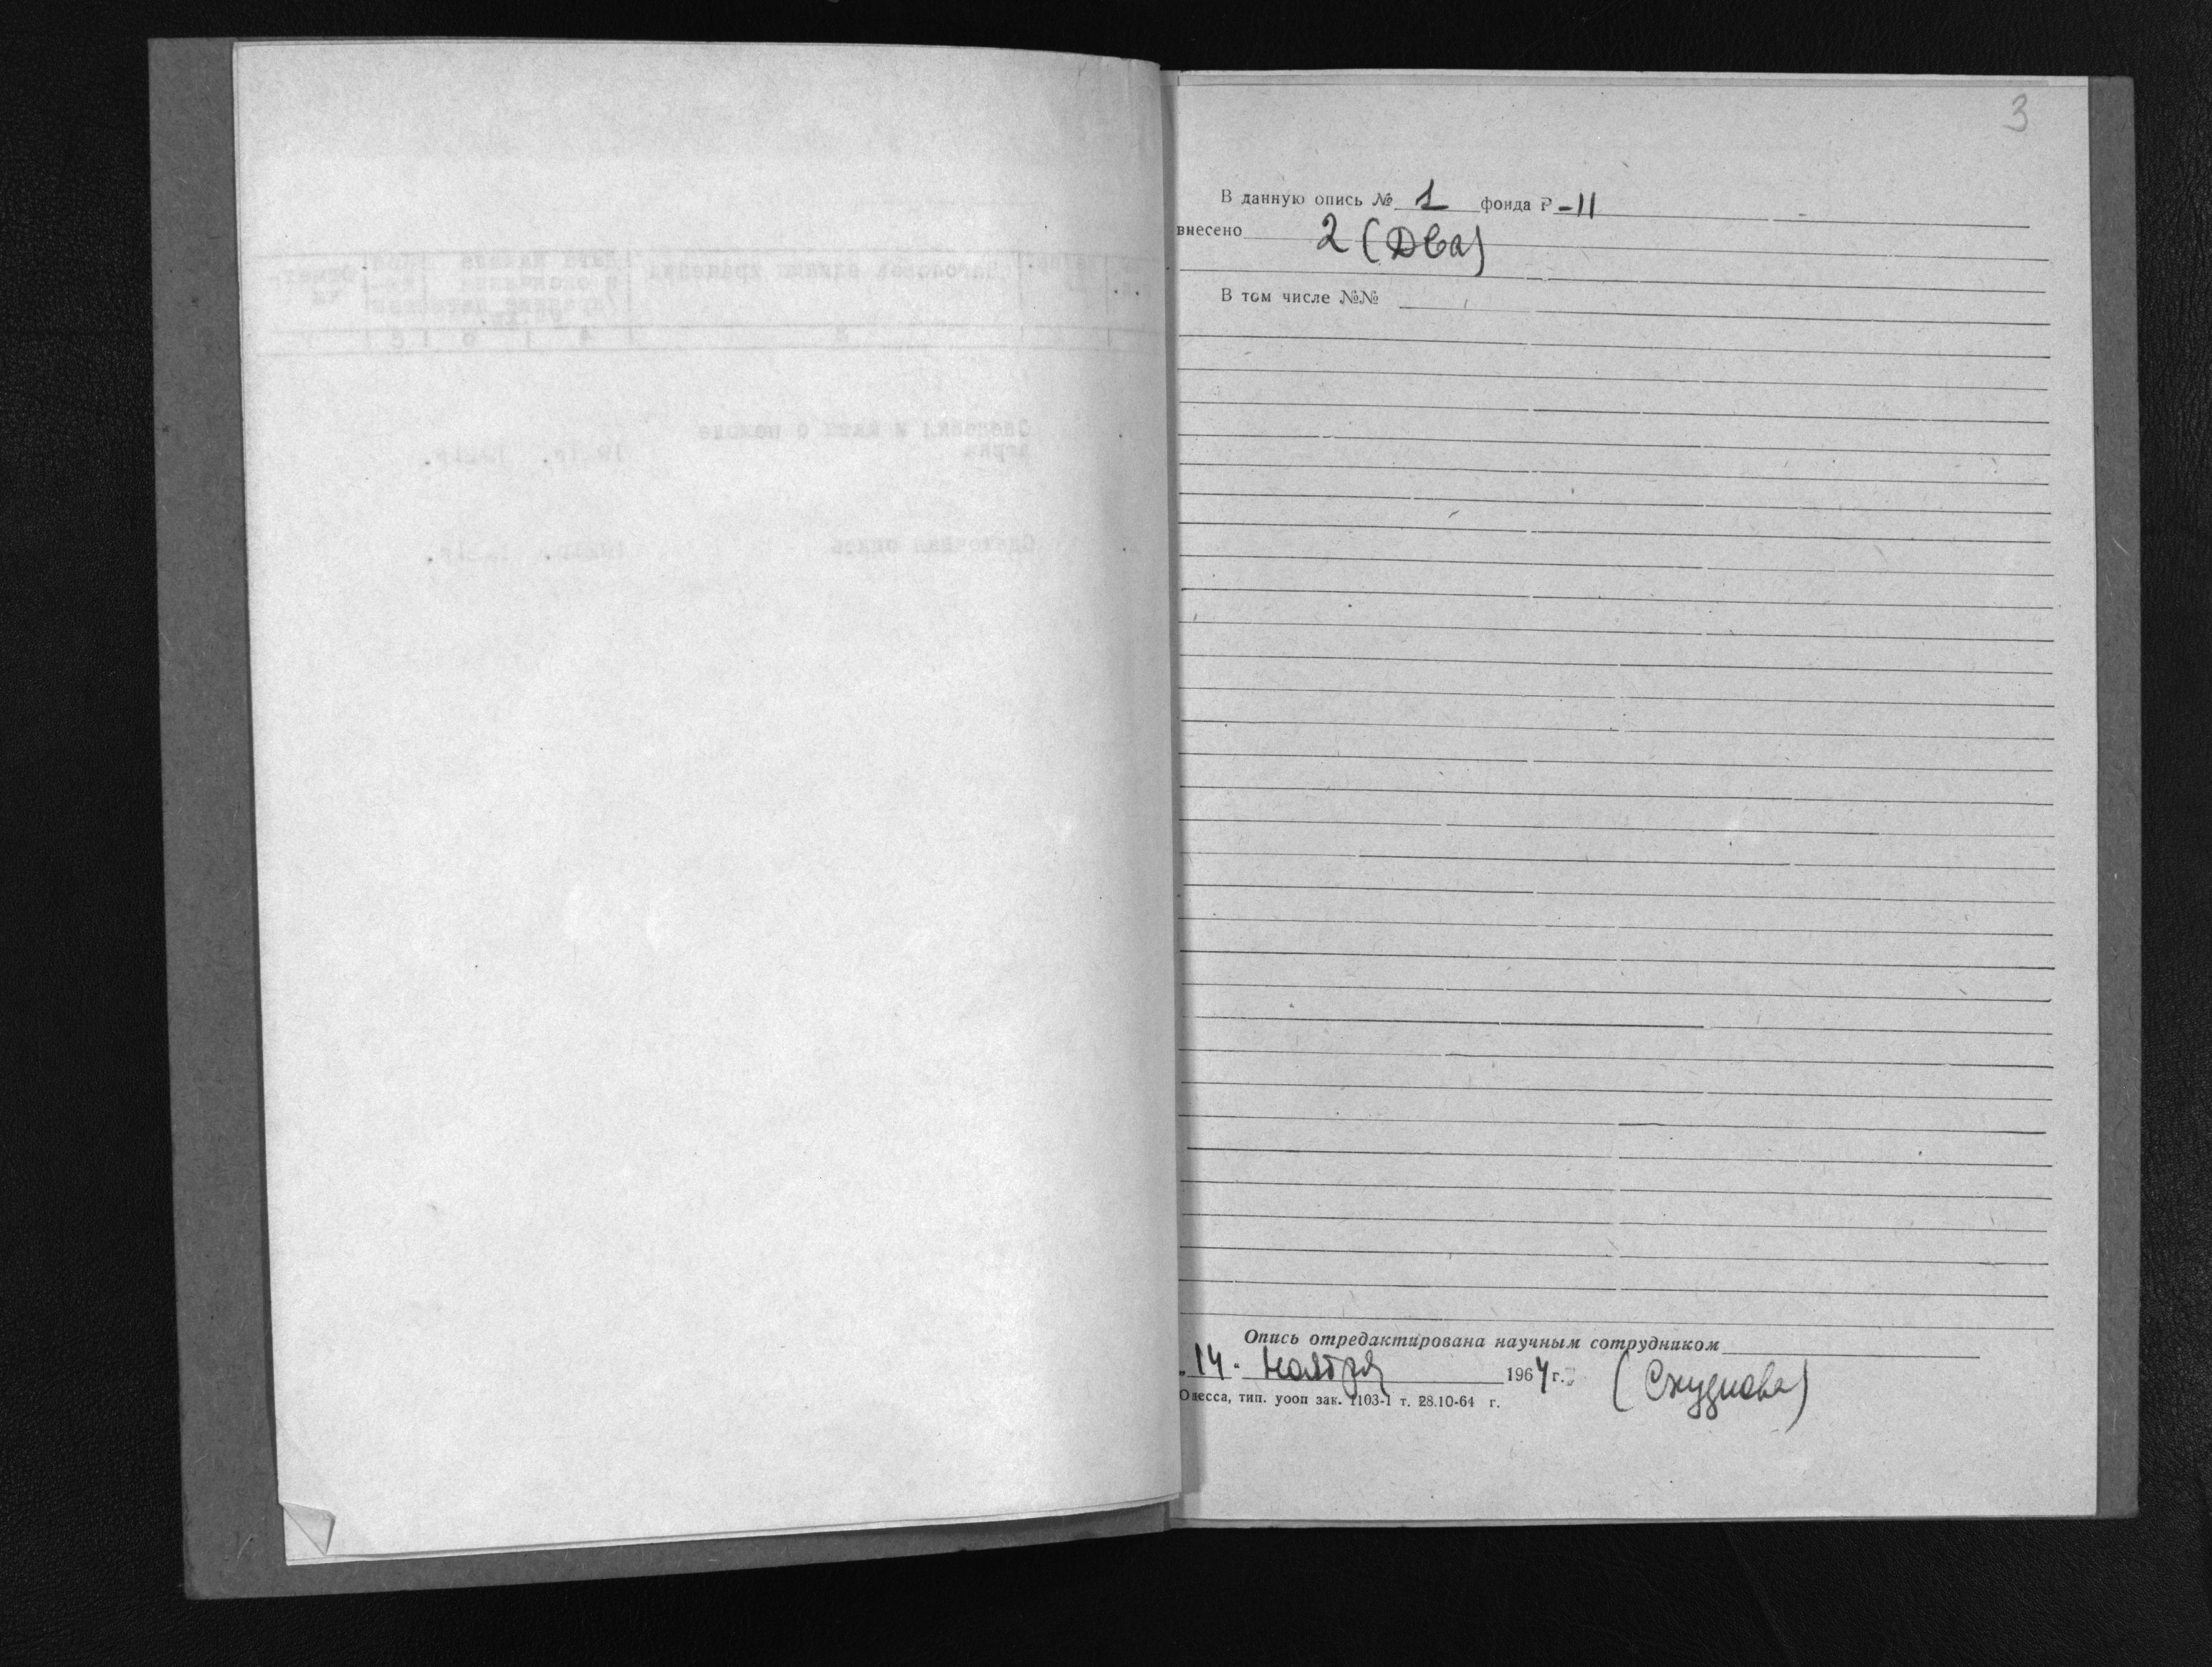 3
В данную опись № 1 фонда Р -11
внесено 2 (Два)
В том числе №№
Опись отредактирована научным сотрудником
„14. ноября 1964 г.
Одесса, тип. уооп зак. 1103-1 т. 28.10-64 г.